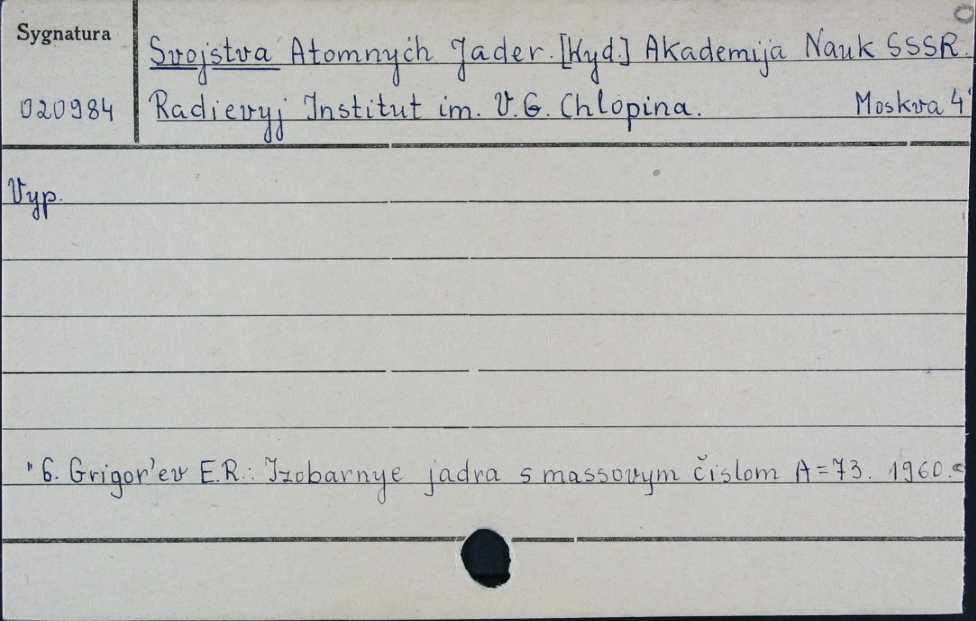 Sygnatura
Svojstva Atomnych Jader. [Wyd.] Akademija Nauk SSSR.
020984
Radievyj Institut im. V. G. Chlopina. Moskva 4°
Vyp.
" 6. Grigor'ev E.R.: Izobarnye jadra s massovym čislom A=73. 1960.